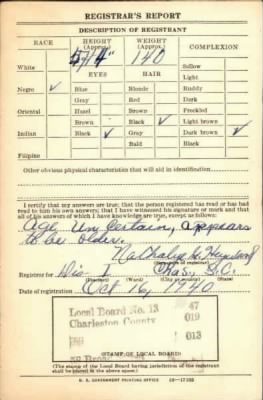 REGISTRAR'S REPORT
DESCRIPTION OF REGISTRANT
RACE
HEIGHT (Approx.)
WEIGHT (Approx.)
COMPLEXION
140
White
Sallow
EYES
HAIR
Light
Negro ✓
Blue
Blonde
Ruddy
Gray
Red
Dark
Oriental
Hazel
Brown
Freckled
Brown
Black ✓
Light brown
Indian
Black ✓
Gray
Dark brown ✓
Bald
Black
Filipino
Other obvious physical characteristics that will aid in identification
I certify that my answers are true; that the person registered has read or has had
read to him his own answers; that I have witnessed his signature or mark and that
all of his answers of which I have knowledge are true, except as follows:
Age Uncertain, appears
to be older.
(Signature of registrar)
Registrar for Dis 1 Chas, S.C.
(Precinct) (Ward) (City or county) (State)
Date of registration Oct 16, 1940
Local Board No. 13 47
Charleston County 019
013
(STAMP OF LOCAL BOARD)
(The stamp of the Local Board having jurisdiction of the registrant shall be
placed in the above space.)
U. S. GOVERNMENT PRINTING OFFICE